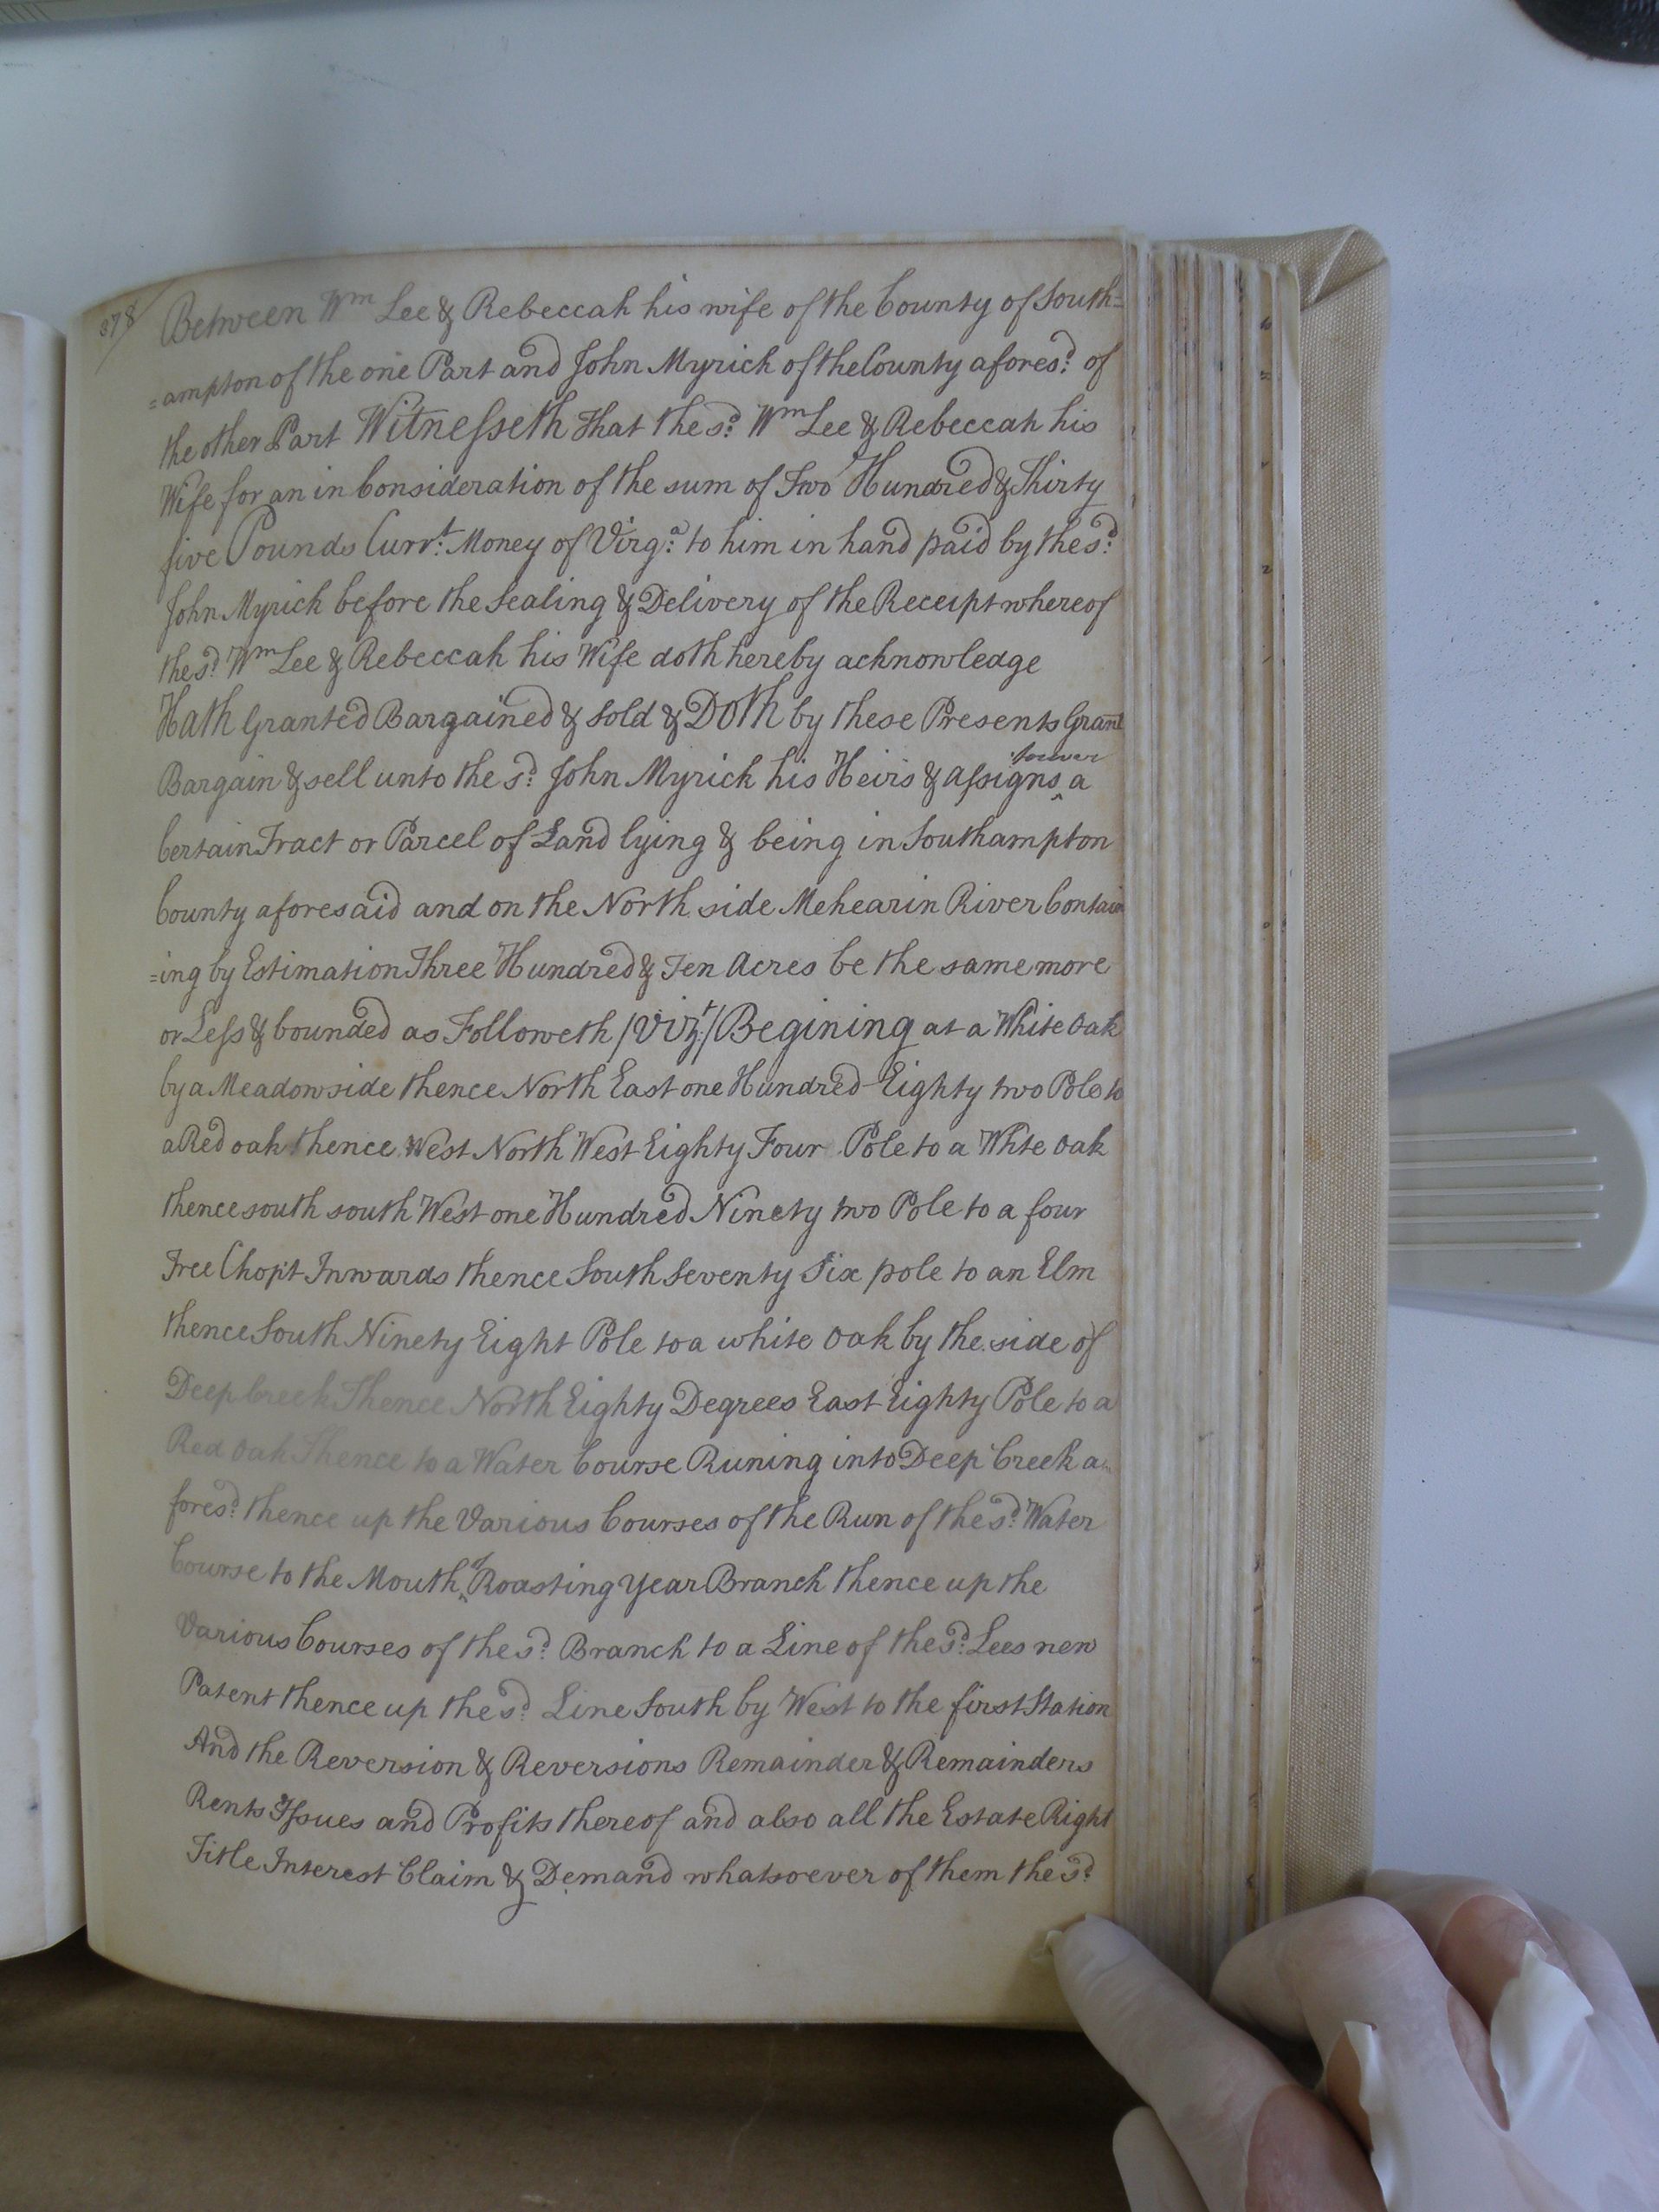 378
Between Wm Lee & Rebeccah his wife of the County of South=
=ampton of the one Part and John Myrick of the County afores:d of
the other Part Witnesseth That the s:d Wm Lee & Rebeccah his
Wife for an in Consideration of the sum of Two Hundred & Thirty
five Pounds Curr:t Money of Virg:a to him in hand paid by the s:d
John Myrick before the Sealing & Delivery of the Receipt whereof
the s:d Wm Lee & Rebeccah his Wife doth hereby acknowledge
Hath Granted Bargained & Sold & Doth by these Presents Grant
Bargain & sell unto the s:d John Myrick his Heirs & assigns forever a
Certain Tract or Parcel of Land lying & being in Southampton
County aforesaid and on the North side Mehearin River Contain
=ing by Estimation Three Hundred & Ten Acres be the same more
or Less & bounded as Followeth /Viz:t/ Begining at a White Oak
by a Meadow side thence North East one Hundred Eighty two Pole to
a Red oak thence West North West Eighty Four Pole to a Whte Oak
thence south south West one Hundred Ninety two Pole to a four
Tree Chopt Inwards thence South Seventy Six pole to an Elm
thence South Ninety Eight Pole to a white Oak by the side of
Deep Creek Thence North Eighty Degrees East Eighty Pole to a
Red Oak Thence to a Water Course Runing into Deep Creek a
fores:d thence up the Various Courses of the Run of the s:d Water
Course to the Mouth of Roasting Year Branch thence up the
Various Courses of the s:d Branch to a Line of the s:d Lees new
Patent thence up the s:d Line South by West to the first Station
And the Reversion & Reversions Remainder & Remainders
Rents Issues and Profits thereof and also all the Estate Right
Title Interest Claim & Demand whatsoever of them the s:d